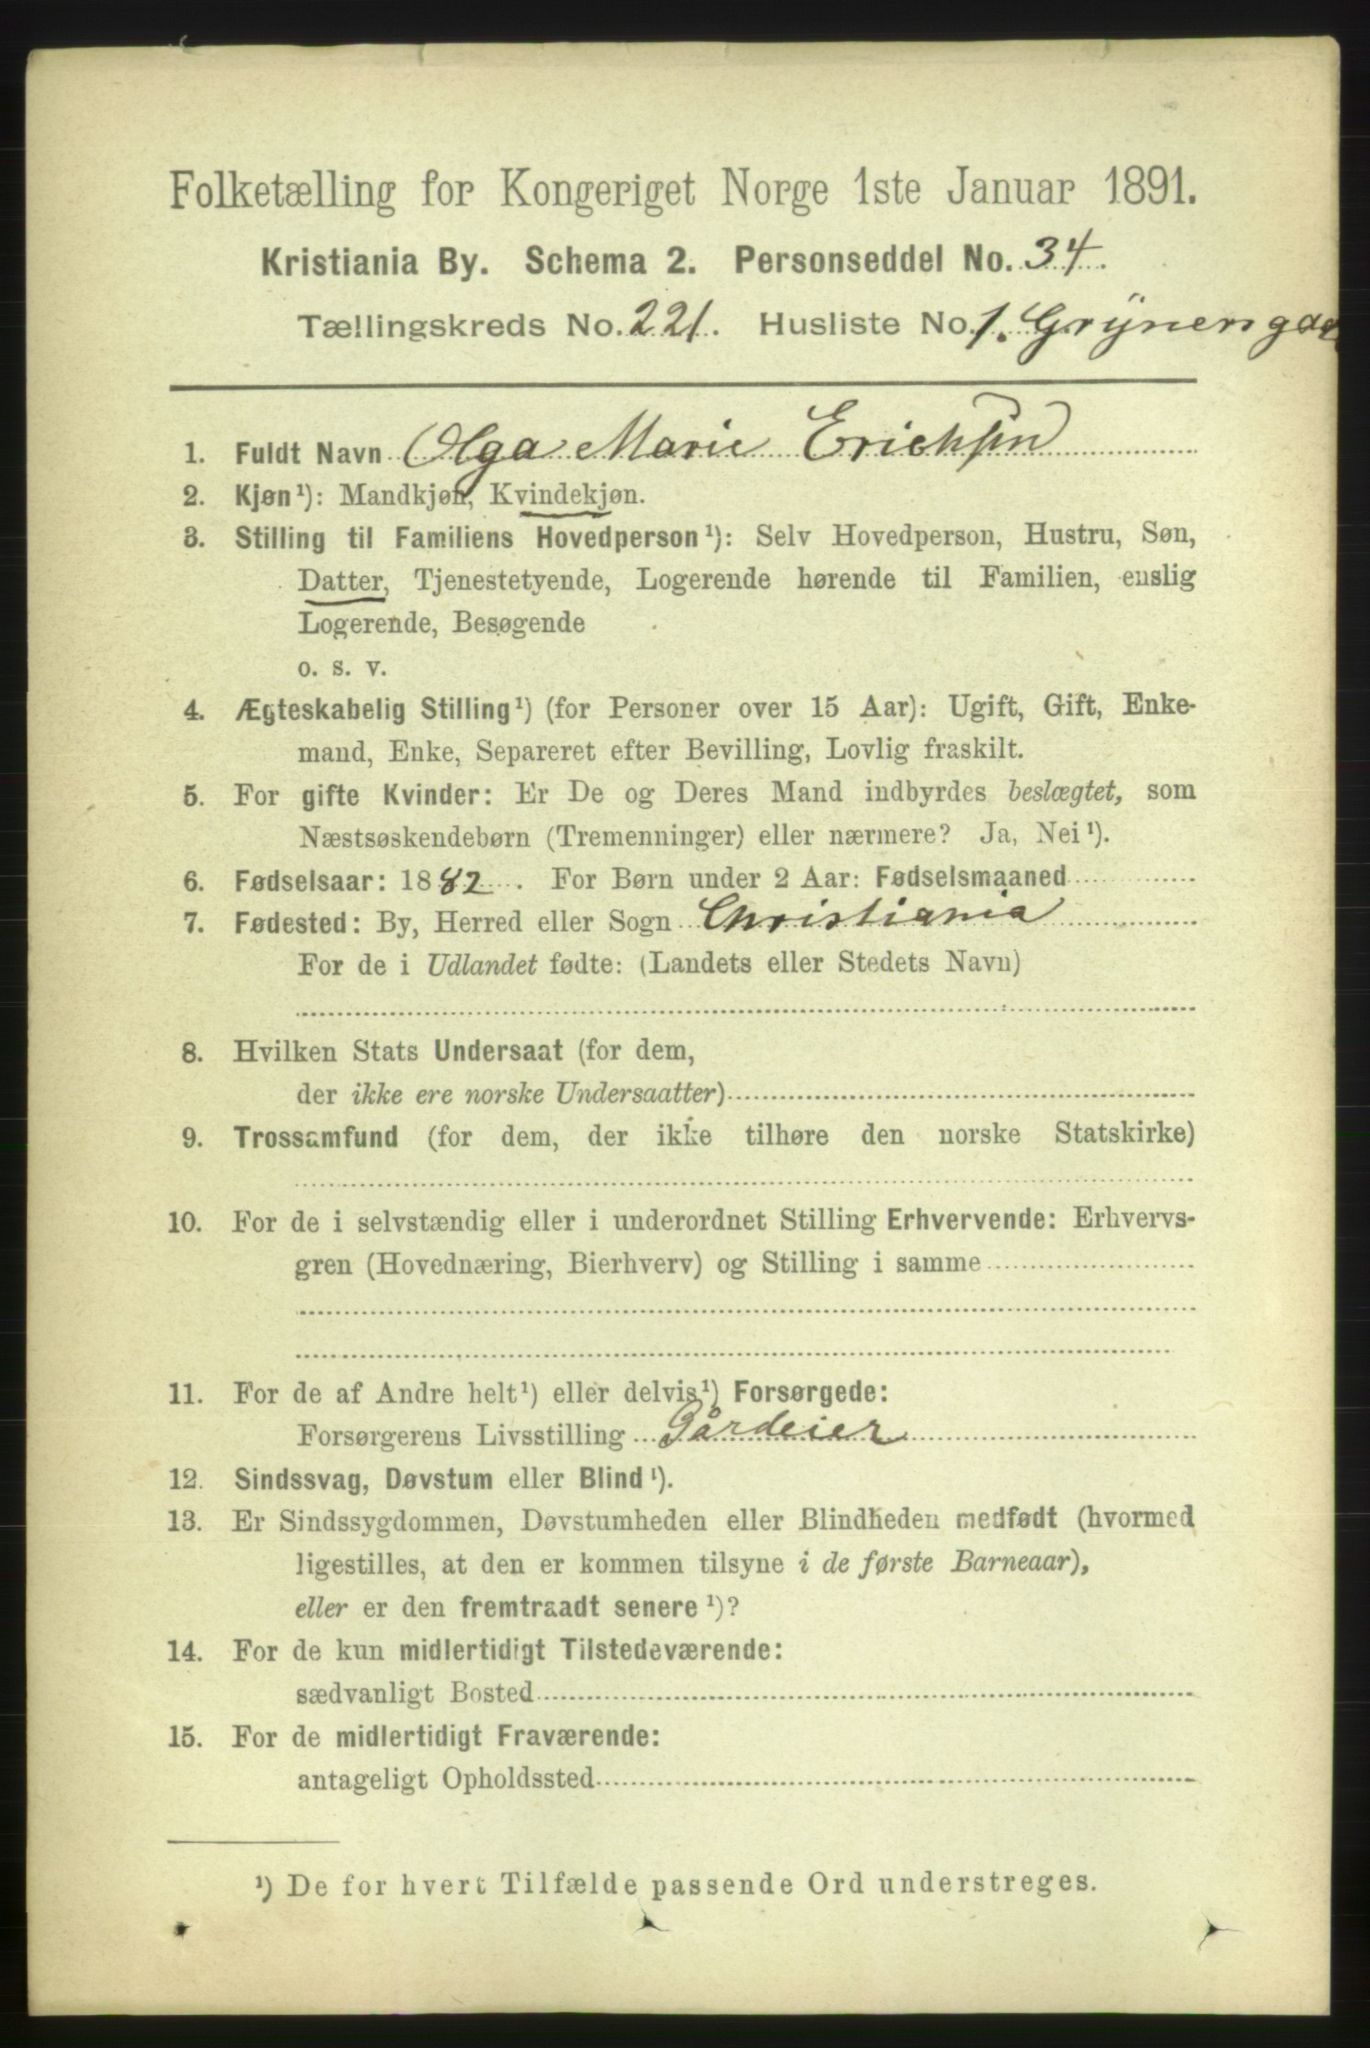 Folketælling for Kongeriget Norge 1ste Januar 1891.
Kristiania By. Schema 2. Personseddel No. 34.
Tællingskreds No. 221. Husliste No. 1.
1. Fuldt Navn Olga Marie Ericksen
2. Kjøn¹): Mandkjøn, Kvindekjøn.
3. Stilling til Familiens Hovedperson¹): Selv Hovedperson, Hustru, Søn,
Datter, Tjenestetyende, Logerende hørende til Familien, enslig
Logerende, Besøgende
o. s. v.
4. Ægteskabelig Stilling¹) (for Personer over 15 Aar): Ugift, Gift, Enke-
mand, Enke, Separeret efter Bevilling, Lovlig fraskilt.
5. For gifte Kvinder: Er De og Deres Mand indbyrdes beslægtet, som
Næstsøskendebørn (Tremenninger) eller nærmere? Ja, Nei¹).
6. Fødselsaar: 1882. For Børn under 2 Aar: Fødselsmaaned
7. Fødested: By, Herred eller Sogn Christiania
For de i Udlandet fødte: (Landets eller Stedets Navn)
8. Hvilken Stats Undersaat (for dem,
der ikke ere norske Undersaatter)
9. Trossamfund (for dem, der ikke tilhøre den norske Statskirke)
10. For de i selvstændig eller i underordnet Stilling Erhvervende: Erhvervs-
gren (Hovednæring, Bierhverv) og Stilling i samme
11. For de af Andre helt¹) eller delvis¹) Forsørgede:
Forsørgerens Livsstilling Gårdeier
12. Sindssvag, Døvstum eller Blind¹).
13. Er Sindssygdommen, Døvstumheden eller Blindheden medfødt (hvormed
ligestilles, at den er kommen tilsyne i de første Barneaar),
eller er den fremtraadt senere¹)?
14. For de kun midlertidigt Tilstedeværende:
sædvanligt Bosted
15. For de midlertidigt Fraværende:
antageligt Opholdssted
¹) De for hvert Tilfælde passende Ord understreges.